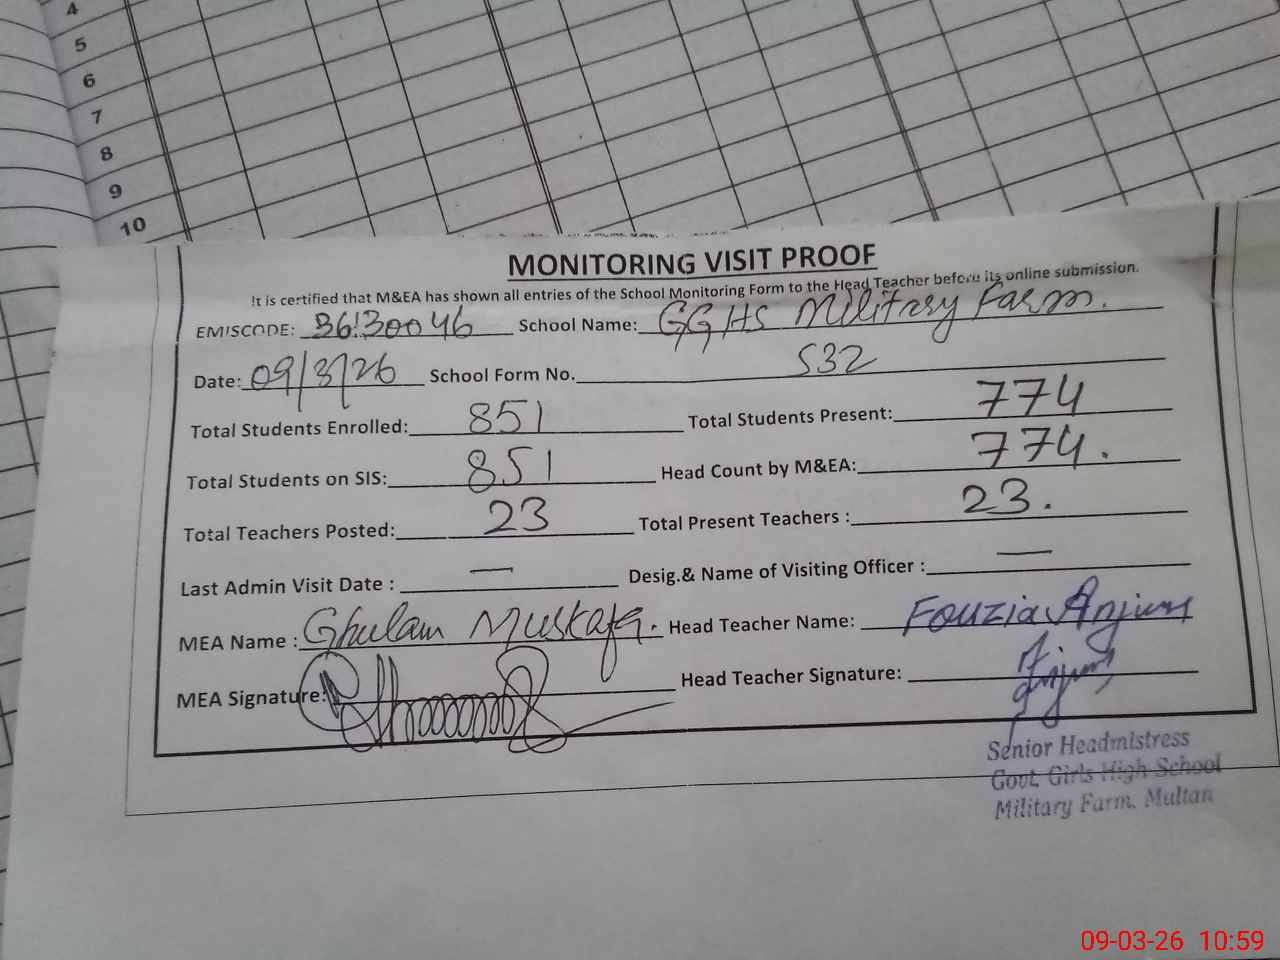 4
5
6
7
8
9
10
MONITORING VISIT PROOF
It is certified that M&EA has shown all entries of the School Monitoring Form to the Head Teacher before its online submission.
EMISCODE: 36130046 School Name: GGHS Military Farm.
Date: 09/3/26 School Form No. 532
Total Students Enrolled: 851 Total Students Present: 774
Total Students on SIS: 851 Head Count by M&EA: 774.
Total Teachers Posted: 23 Total Present Teachers : 23.
Last Admin Visit Date : — Desig.& Name of Visiting Officer : —
MEA Name : Ghulam Mustafa. Head Teacher Name: Fouzia Anjum
MEA Signature: Head Teacher Signature: Anjum
Senior Headmistress
Govt. Girls High School
Military Farm, Multan
09-03-26 10:59